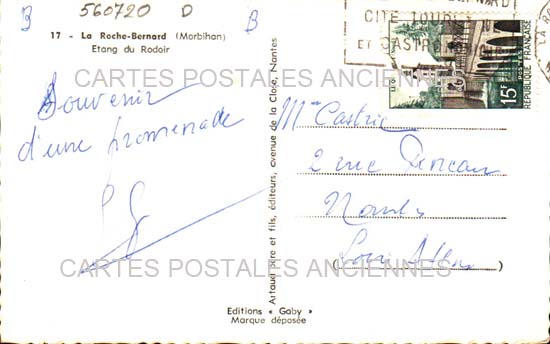 B 560720 D B
17 - La Roche-Bernard (Morbihan)
Etang du Rodoir
CITE
ET GASTRONOMIQUE
LA RO
15F
POSTES
REPUBLIQUE FRANÇAISE
CARTES POSTALES ANCIENNES
Souvenir
d'une promenade
Artaud père et fils, éditeurs, avenue de la Close, Nantes
Mme Castric
2 rue
Nantes
Loire Atlan
CARTES POSTALES ANCIENNES
Editions « Gaby »
Marque déposée